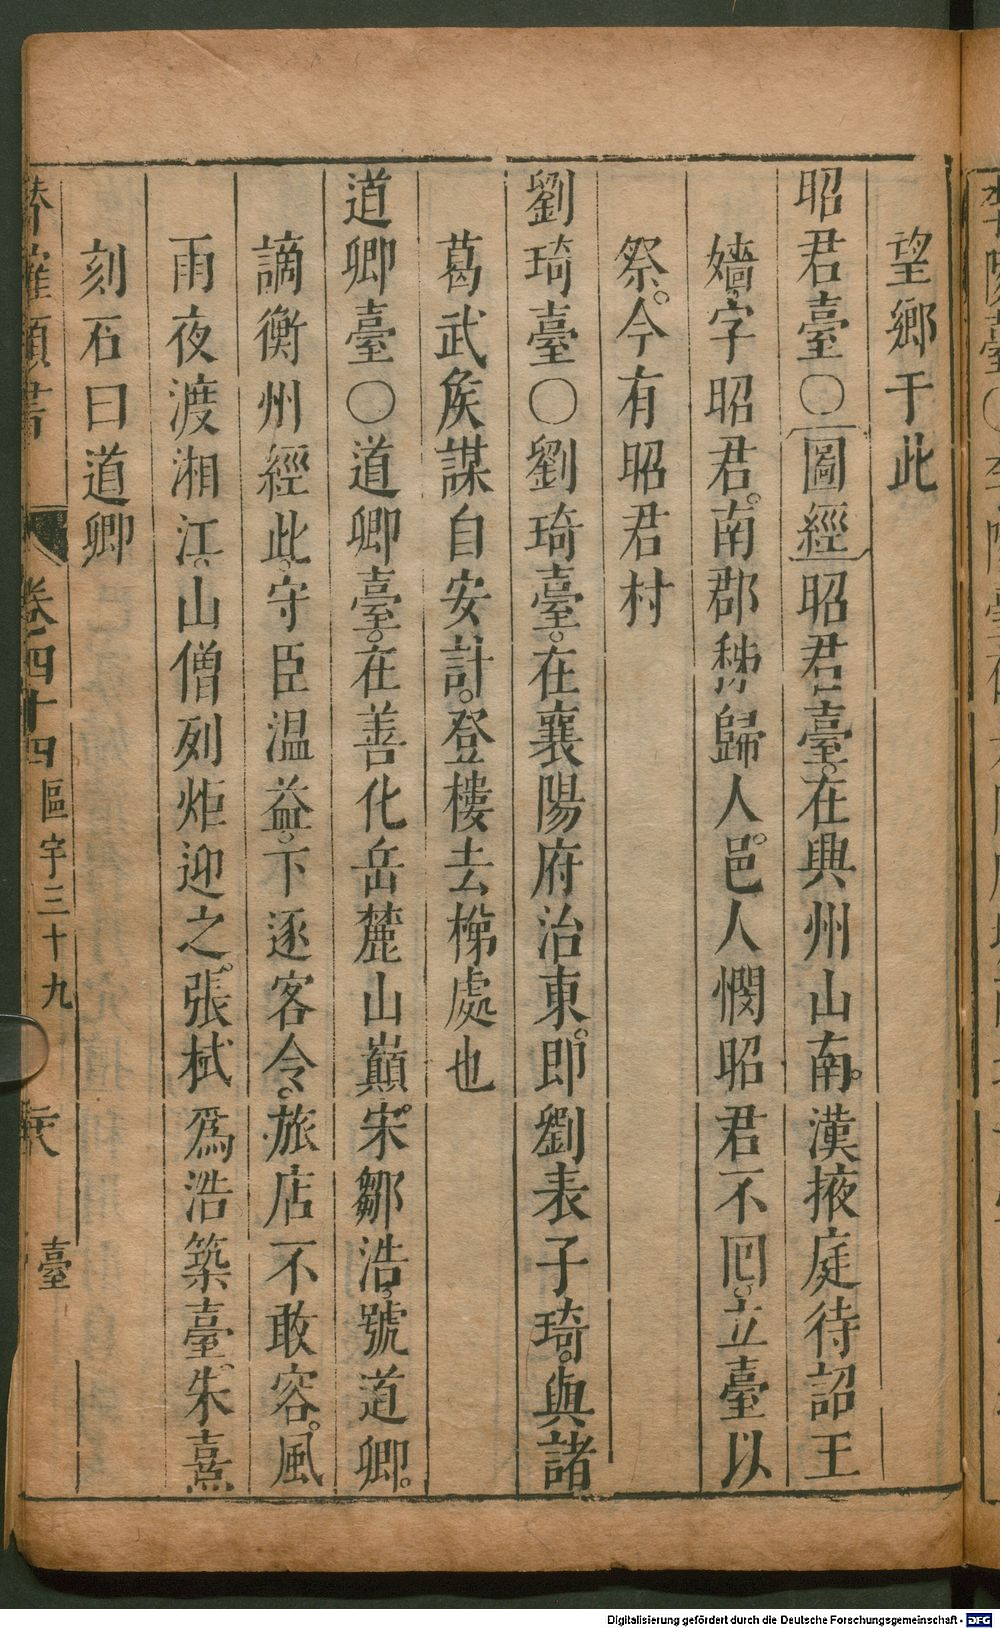 望鄉于此
昭君臺○圖經昭君臺。在興州山南。漢掖庭待詔王
嬙。字昭君。南郡秭歸人。邑人憫昭君不囘。立臺以
祭。今有昭君村
劉琦臺○劉琦臺。在襄陽府治東。即劉表子琦。與諸
葛武矦謀自安計。登樓去梯處也
道卿臺○道卿臺。在善化岳麓山巔。宋鄒浩。號道卿。
謫衡州經此。守臣温益。下逐客令。旅店不敢容。風
雨夜渡湘江。山僧列炬迎之。張栻爲浩築臺。朱熹
刻石曰道卿
卷四十四 區宇三十九 臺
Digitalisierung gefördert durch die Deutsche Forschungsgemeinschaft - DFG